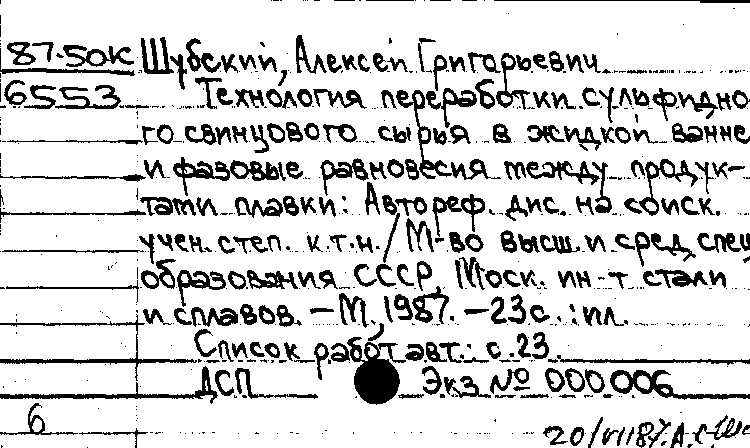 87-50К Шубский, Алексей Григорьевич
6553 Технология переработки сульфидно
го свинцового сырья в жидкой ванне
и фазовые равновесия между продук-
тами плавки: Автореф. дис. на соиск.
учен. степ. к.т.н. / М-во высш. и сред. спец
образования СССР, Моск. ин-т стали
и сплавов. – М., 1987. – 23 с. : ил.
Список работ авт.: с. 23
ДСП Экз № 000006
6
20/VII87. А.С.